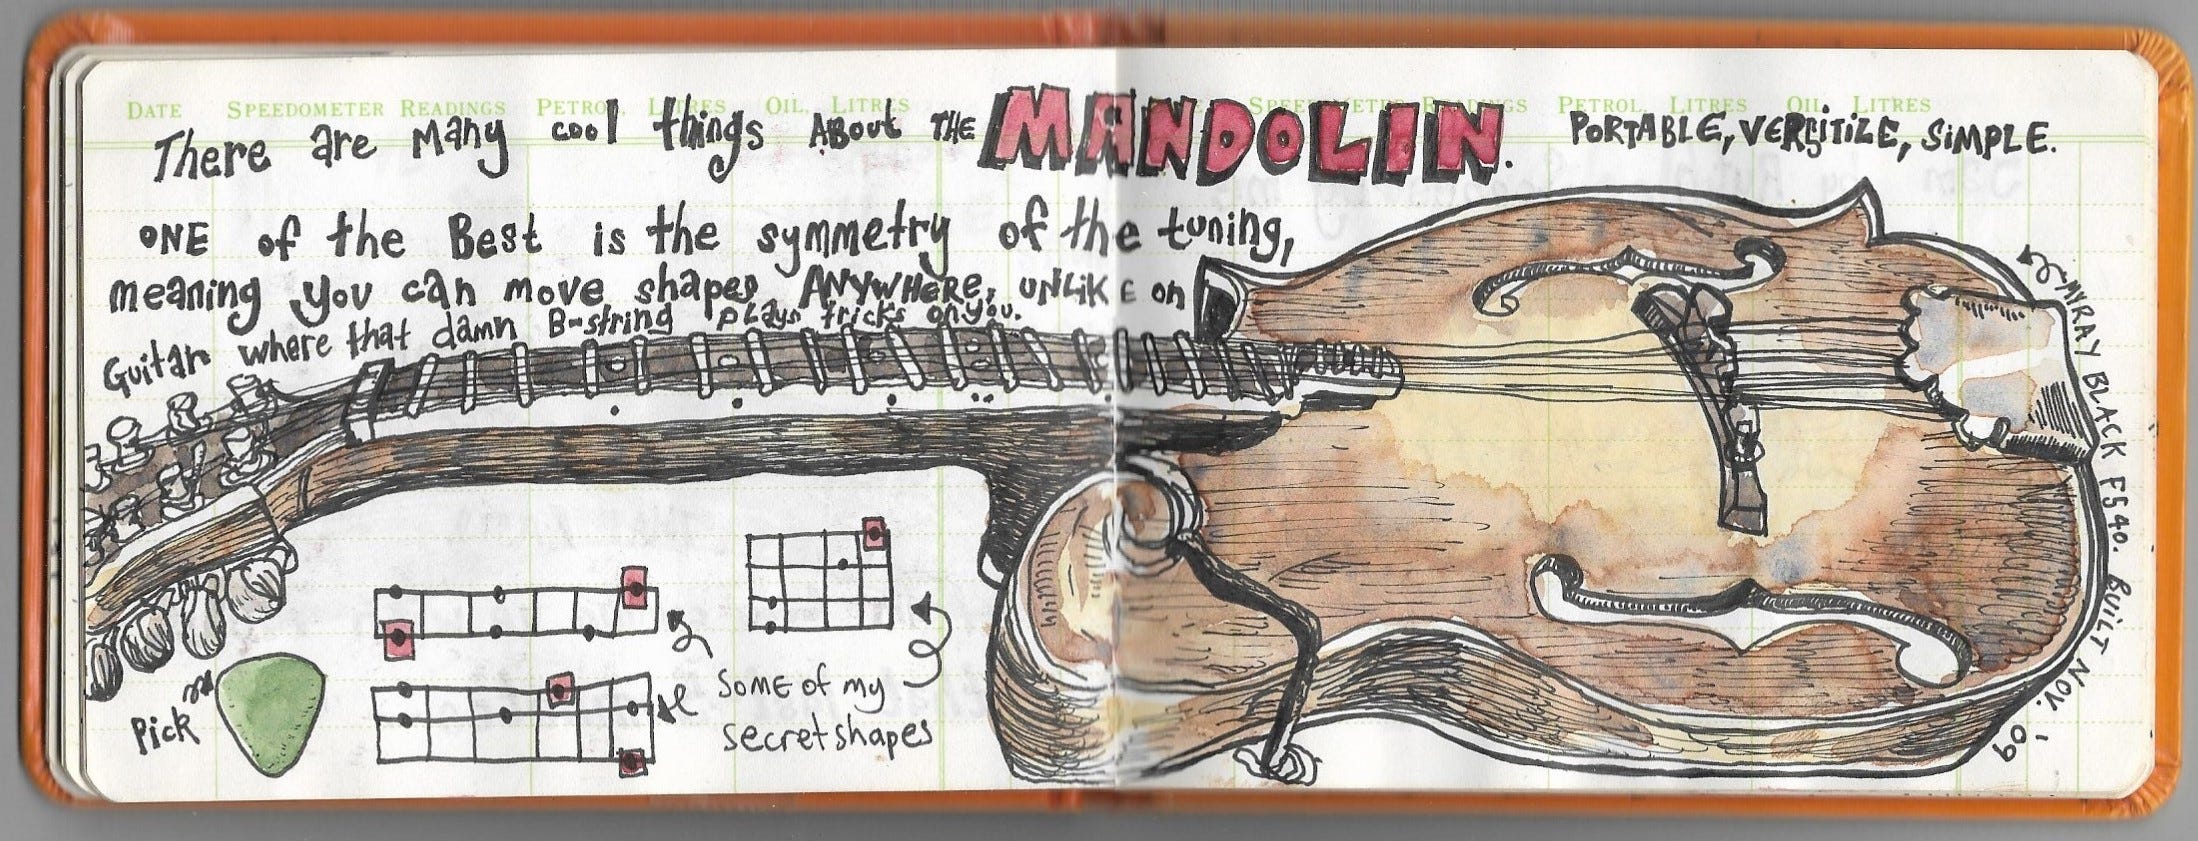 DATE SPEEDOMETER READINGS PETROL LITRES OIL LITRES SPEEDOMETER READINGS PETROL LITRES OIL LITRES
There are Many cool things About THE MANDOLIN. PORTABLE, VERSITILE, SIMPLE.
ONE of the Best is the symmetry of the tuning,
meaning you can move shapes ANYWHERE, UNLIKE on
Guitar where that damn B-string plays tricks on you.
MY RAY BLACK F540. BUILT NOV. '09
Pick
SOME of my
secret shapes